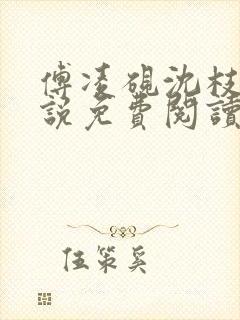 傅凌砚沈枝
說免費閱讀
伍策奚